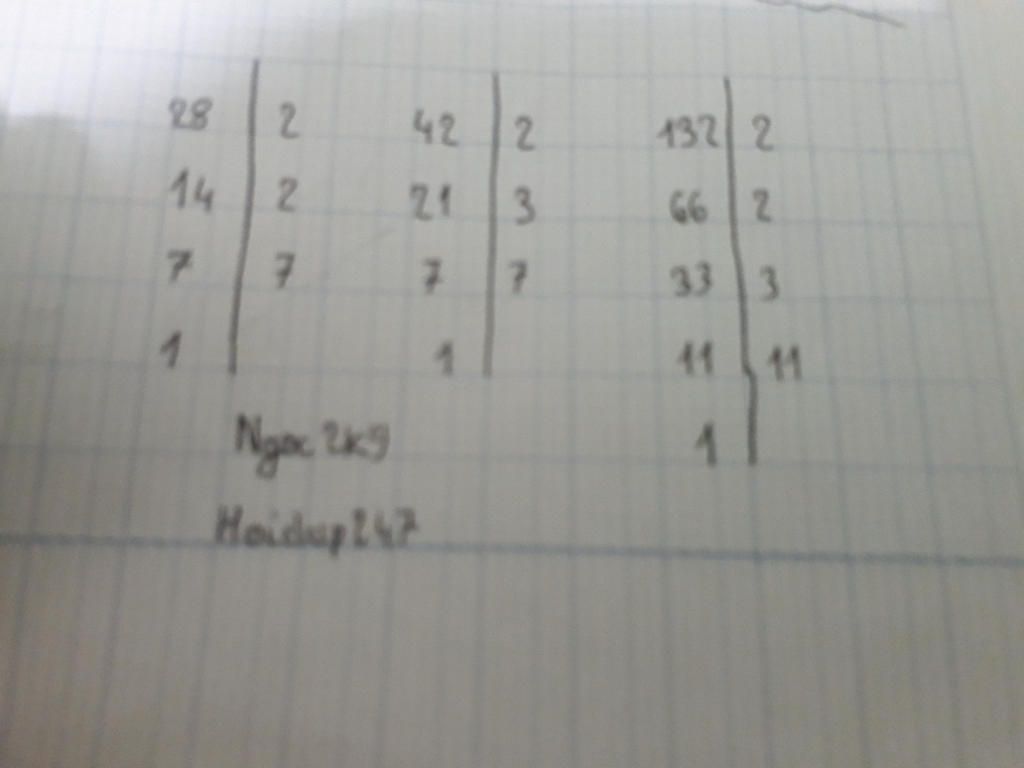 28 2 42 2 132 2
14 2 21 3 66 2
7 7 7 7 33 3
1 1 11 11
Ngoc 2k9 1
Hoidap247